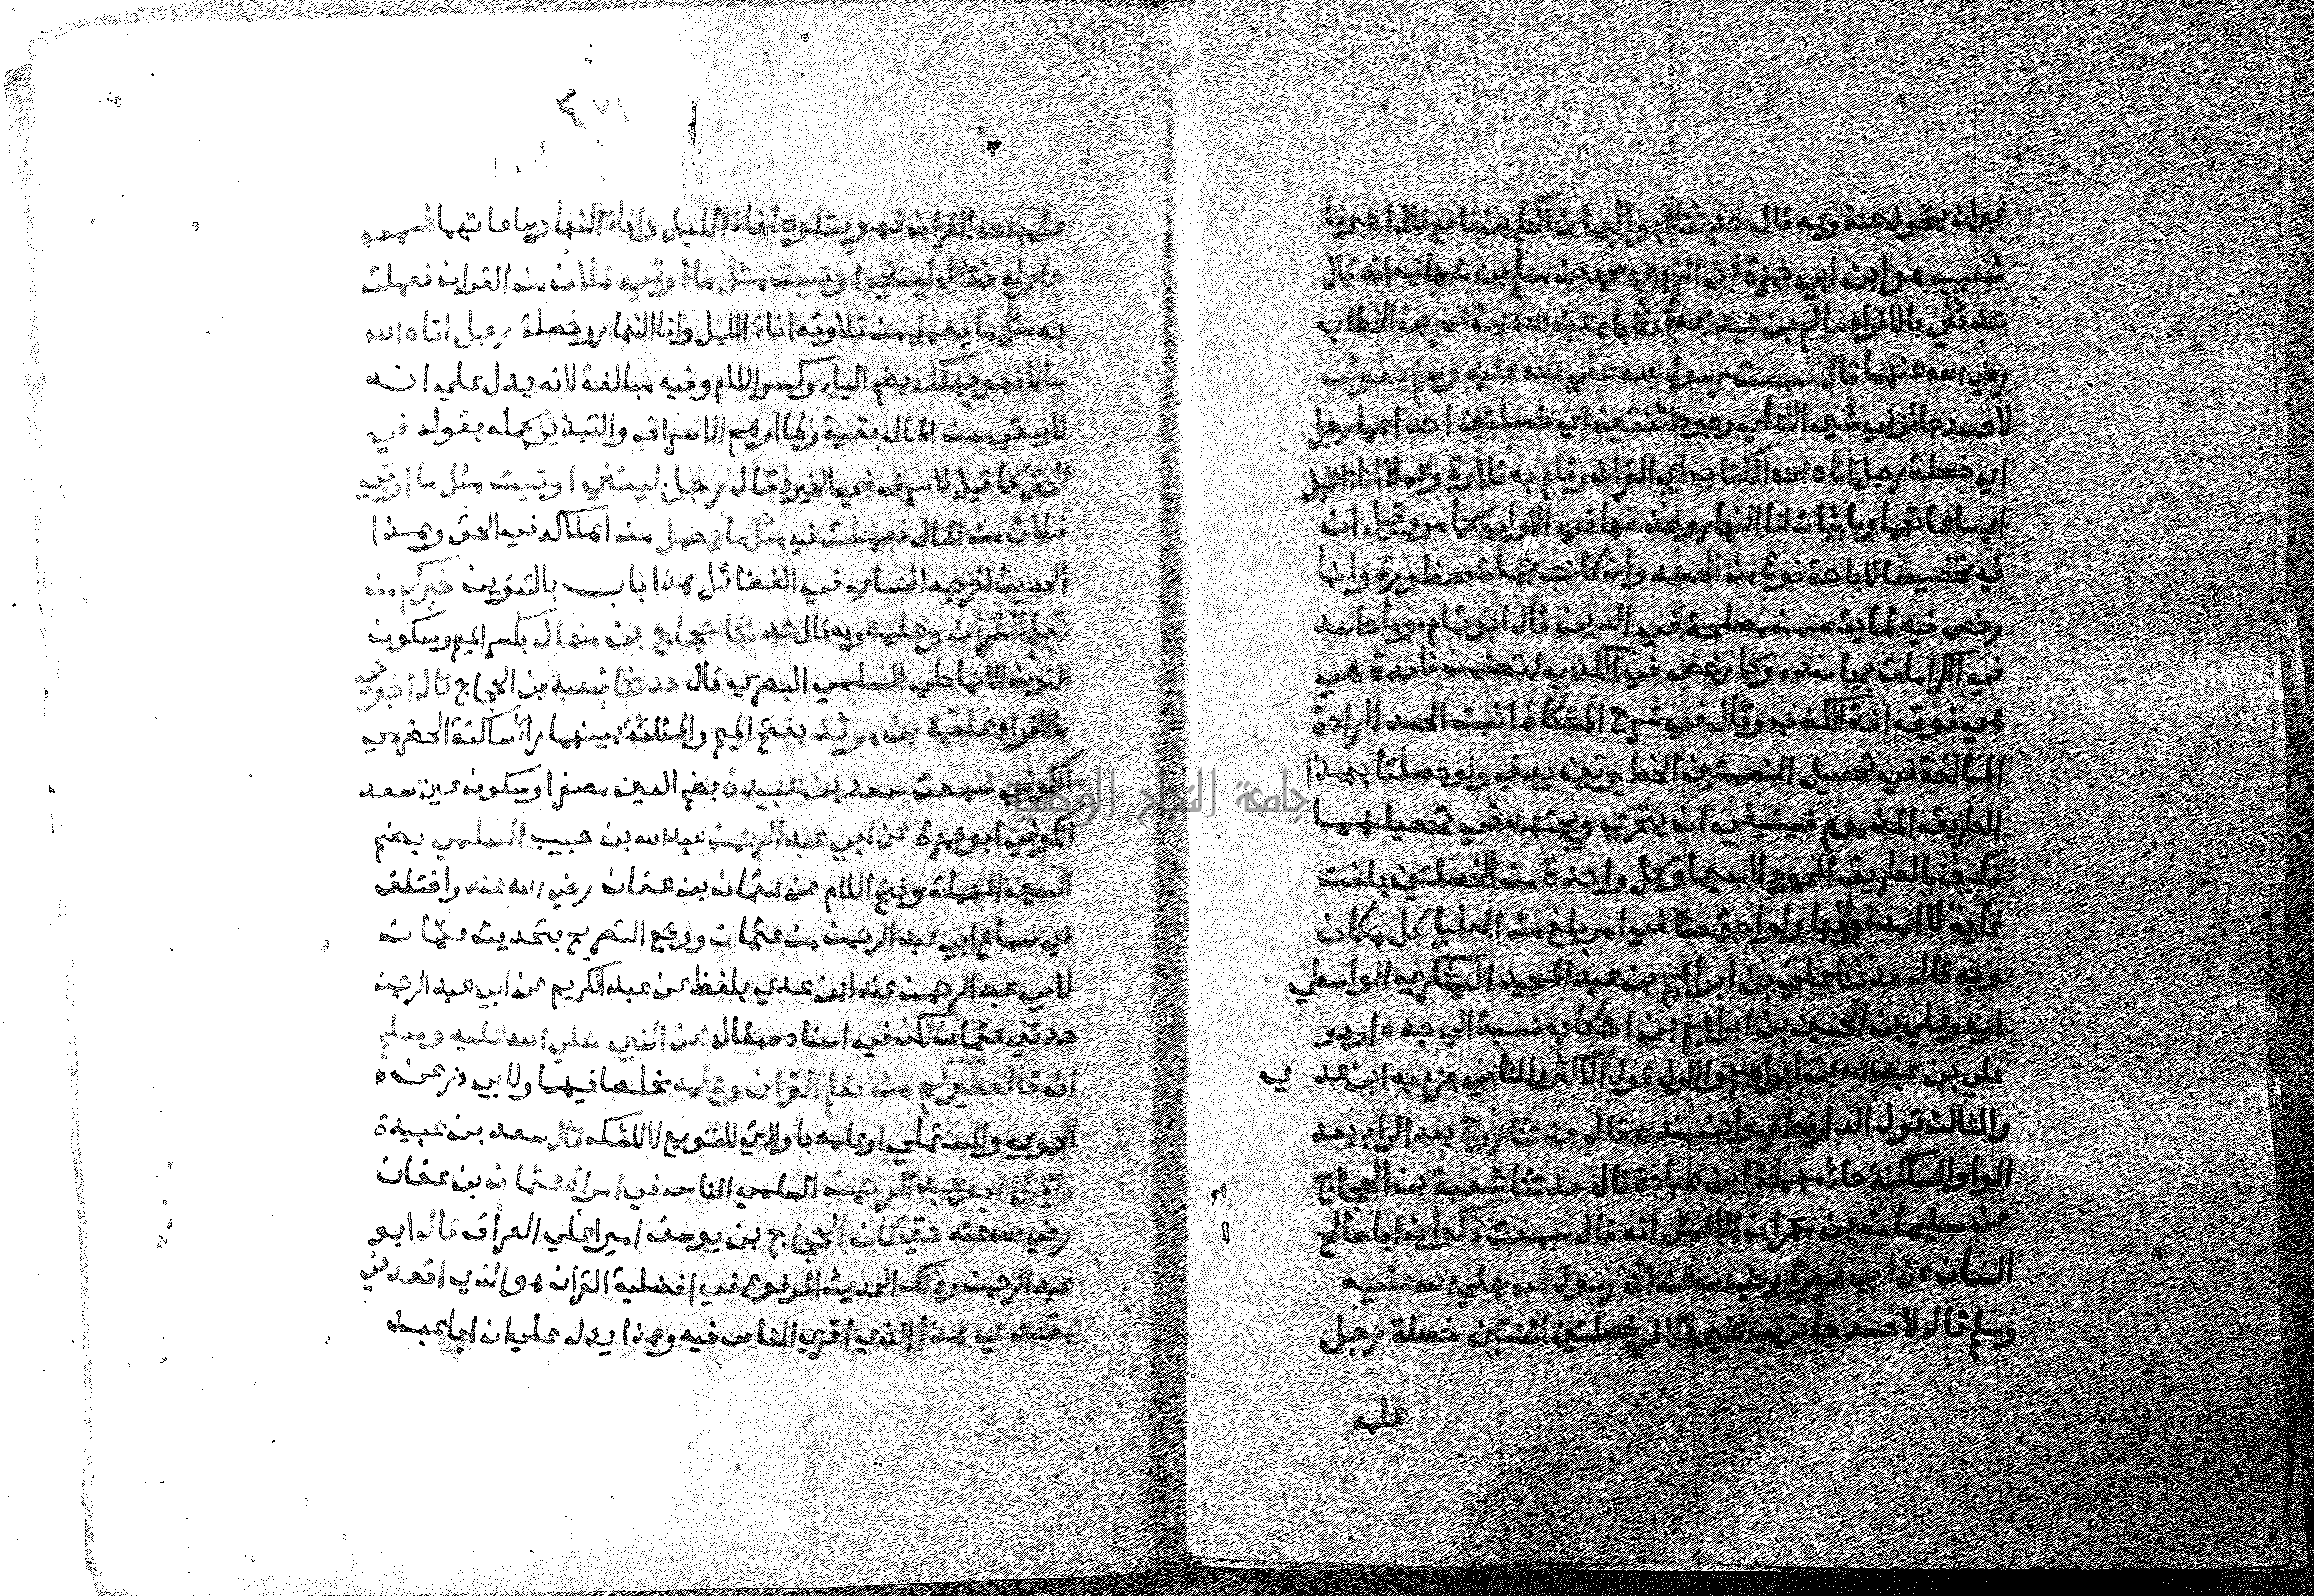 غير ان يتحول عنه وبه قال حدثنا ابو اليمان الحكم بن نافع قال اخبرنا
شعيب هو ابن ابي حمزة عن الزهري محمد بن مسلم بن شهاب انه قال
حدثني بالافراد سالم بن عبد الله ان اباه عبد الله بن عمر بن الخطاب
رضي الله عنهما قال سمعت رسول الله صلي الله عليه وسلم يقول
لا حسد جائز في شي الا علي وجود اثنتين اي خصلتين احداهما رجل
اي خصلة رجل اتاه الله الكتاب اي القران وقام به تلاوة وعملا اناء الليل
اي ساعاتهما وباثبات انا النهار وحذفها في الاولي كما مر وقيل ان
فيه تخصيصا لاباحة نوع من الحسد وان كانت جملة محظورة وانما
رخص فيه لما يتضمن مصلحة في الدين قال ابو تمام وما حاسد
في المكرمات بحاسد وكما رخص في الكذب لتضمن فائدة هي
هي فوق افة الكذب وقال في شرح المشكاة اثبت الحسد لارادة
المبالغة في تحصيل النعمتين الخطيرتين يعني ولو حصلتا بهذا
الطريق المذموم فينبغي ان يتحري ويجتهد في تحصيلهما
فكيف بالطريق المحمود لا سيما وكل واحدة من الخصلتين بلغت
غاية لا امد فوقها ولو اجتمعتا في امر بلغ من العليا كل مكان
وبه قال حدثنا علي بن ابراهيم بن عبد المجيد اليشكري الواسطي
او هو علي بن الحسين بن ابراهيم بن اشكاب نسبة الي جده او هو
علي بن عبد الله بن ابراهيم والاول قول الاكثر والثاني جزم به ابن عد ي
والثالث قول الدارقطني وابن منده قال حدثنا روح بعد الراء بعد
الواو الساكنة حاء مهملة ابن عبادة قال حدثنا شعبة بن الحجاج
عن سليمان بن مهران الاعمش انه قال سمعت ذكوان ابا صالح
السمان عن ابي هريرة رضي الله عنه ان رسول الله صلي الله عليه
وسلم قال لا حسد جائز في شي الا في خصلتين اثنتين خصلة رجل
عليه
٤٧١
علمه الله القران فهو يتلوه اناء الليل واناء النهار ساعاتهما فسمعه
جار له فقال ليتني اوتيت مثل ما اوتي فلان من القران فعملت
به مثل ما يعمل من تلاوته اناء الليل وانا النهار وخصلة رجل اتاه الله
مالا فهو يهلكه بضم الياء وكسر اللام وفيه مبالغة لانه يدل علي انه
لا يبقي من المال بقية ولما اوهم الاسراف والتبذير كمله بقوله في
الحق كما قيل لا سرف في الخير فقال رجل ليتني اوتيت مثل ما اوتي
فلان من المال فعملت فيه مثل ما يعمل من اهلاكه في الحق وهذا
الحديث اخرجه النساي في الفضائل هذا باب بالتنوين خيركم من
تعلم القران وعلمه وبه قال حدثنا حجاج بن منهال بكسر الميم وسكون
النون الانماطي السلمي البصري قال حدثنا شعبة بن الحجاج قال اخبرني
بالافراد علقمة بن مرثد بفتح الميم والمثلثة بينهما راء ساكنة الحضرمي
الكوفي سمعت سعد بن عبيدة بضم العين مصغرا وسكون عين سعد
الكوفي ابو حمزة عن ابي عبد الرحمن عبد الله بن حبيب السلمي بضم
السين المهملة وفتح اللام عن عثمان بن عفان رضي الله عنه واختلف
في سماع ابي عبد الرحمن من عثمان ووقع التصريح بتحديث عثمان
لابي عبد الرحمن عند ابن عدي بلفظ عن عبد الكريم عن ابي عبد الرحمن
حدثني عثمان لكن في اسناده مقال عن النبي صلي الله عليه وسلم
انه قال خيركم من تعلم القران وعلمه مخلصا فيهما ولابي ذر عن
الحموي والمستملي او علمه باو التي للتنويع لا للشك قال سعد بن عبيدة
واقرا ابو عبد الرحمن السلمي الناس في امراة عثمان بن عفان
رضي الله عنه حتي كان الحجاج بن يوسف اميرا علي العراق قال ابو
عبد الرحمن وذلك الحديث المرفوع في افضلية القران هو الذي اقعدني
مقعدي هذا الذي اقري الناس فيه وهذا يدل علي ان ابا عبد
جامعة النجاح الوطنية